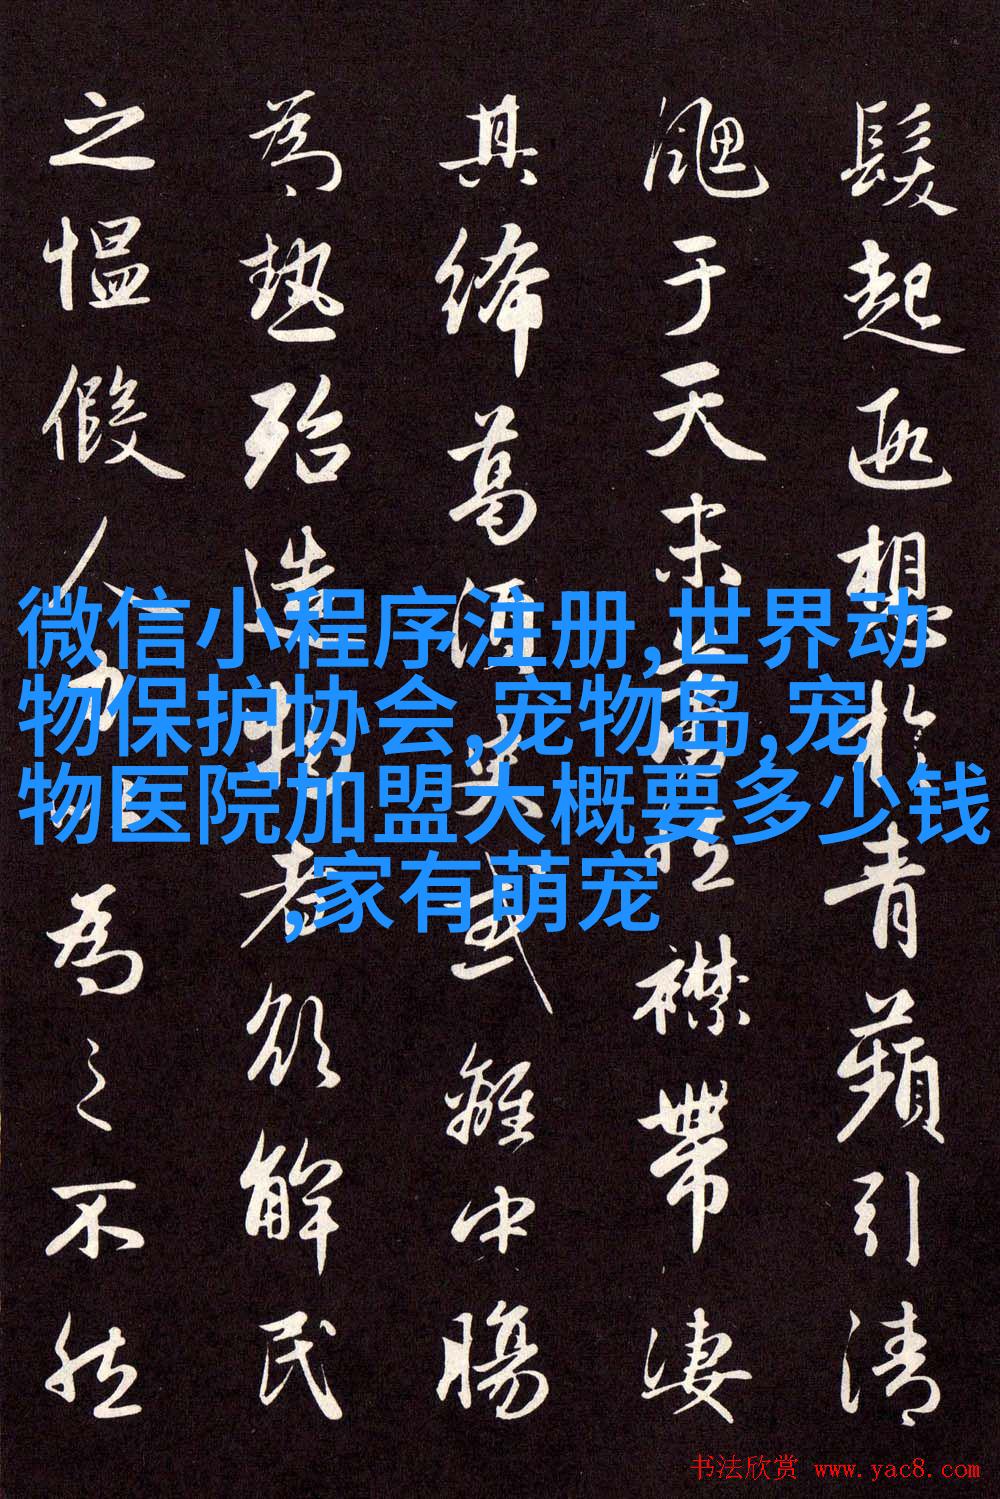 髮起遐想於青蘋引清
颸于天末襟帶凄
其絺葛離中腸
為熱殆造物者欲解民
之愠假人為之不然
微信小程序注册,世界动
物保护协会,宠物岛,宠
物医院加盟大概要多少钱
,家有萌宠
书法欣赏 www.yac8.com